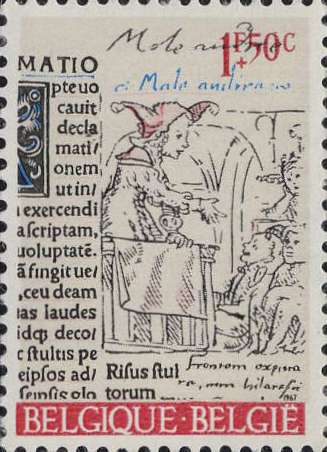 Mole
1F+50C
MATIO
pteuo
cauit
decla
mati/
onem
ut in/
exercendi
a scriptam,
uoluptatē.
ā fingit ue/
,ceu deam
ias laudes
idq; deco/
c stultis pe
eipsos ad/
Risus stul
torum
frontem
hilares
1967
BELGIQUE-BELGIË